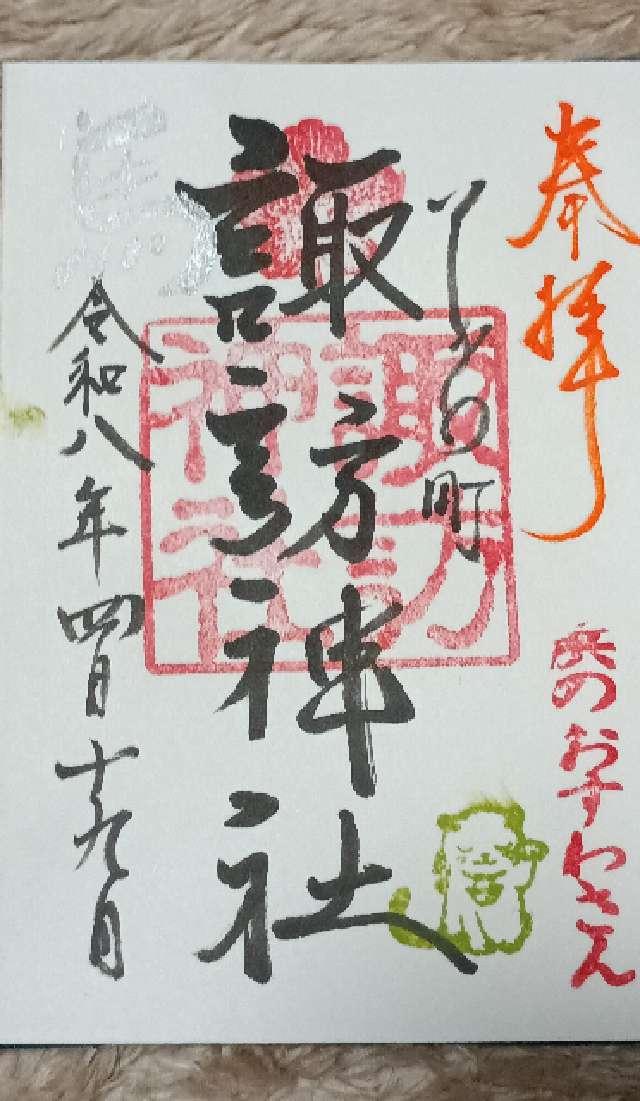 奉拝
浜のおすわさん
町
諏訪神社
諏訪
神社
馬
令和八年四月十九日